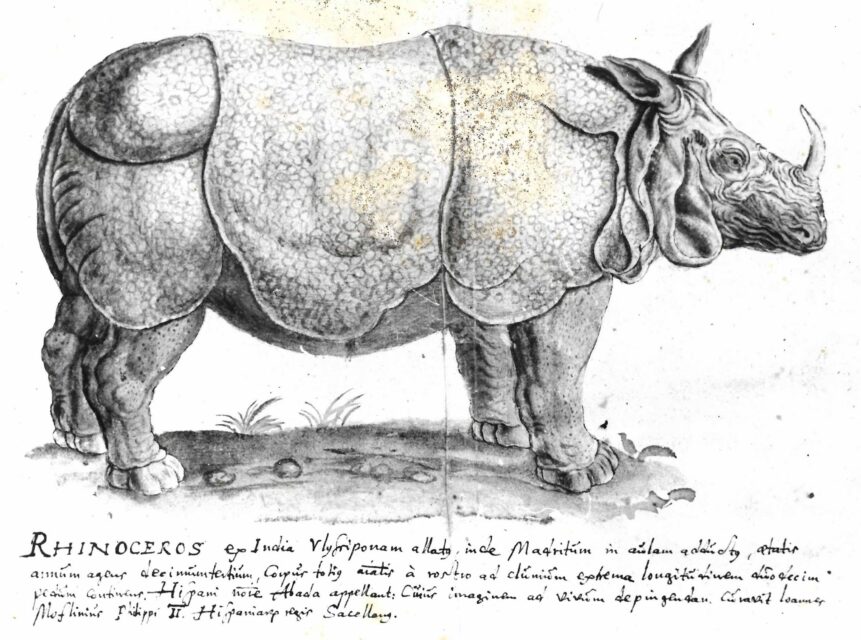 RHINOCEROS ex India Vlyssiponam allatꝰ, inde Madritum in aulam adductꝰ, ætatis
annum agens decimumtertium, Corpus totiꝰ a rostro ad clunium extrema longitudinem duodecim
pedum continens. Hispani noīe Abada appellant: Cuius imaginem ad vivum depingendam. Curavit Ioannes
Moflinius Filippi II. Hispaniarꝫ regis Sacellanꝰ.